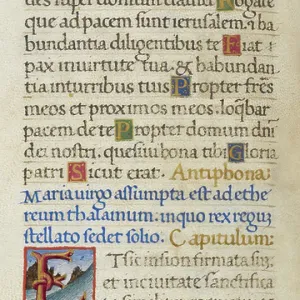 des super domum dauid Rogate
que ad pacem sunt ierusalem: & ha
bundantia diligentibus te Fiat
pax in uirtute tua: & habundan
tia in turribus tuis Propter frēs
meos et proximos meos. loq̄bar
pacem de te Propter domum dn̄i
dei nostri. quesiui bona tibi Gloria
patri Sicut erat. Antiphona:
Maria uirgo assumpta est ad ethe
reum thalamum. in quo rex regum
stellato sedet solio. Capitulum:
Et sic in sion firmata sum
et in ciuitate sanctifica